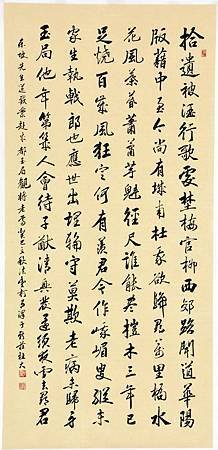 拾遺被酒行歌處埜梅官柳西郊路聞道華陽
版籍中至今尚有城南杜我欲歸尋萬里橋水
花風葉暮蕭蕭芋魁徑尺誰能盡榿木三年已
足燒百歲風狂定何有羨君今作峨嵋叟縱未
家生執戟郎也應世出埋輪守莫欺老病未歸身
玉局他年第幾人會待子猷清興發還須夜雪去尋君
東坡先生送戴蒙赴成都玉局觀將老焉癸巳之秋